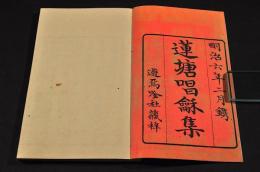 明治六年二月鐫
蓮塘唱龢集
游焉唫社藏梓